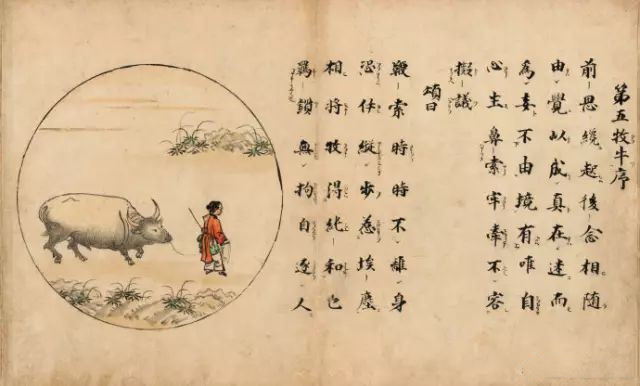 第五牧牛序
前思纔起後念相随
由覺以成真在迷而
為妄不由境有唯自
心生鼻索牢牽不容
擬議
頌曰
鞭索時時不離身
恐伊縱步惹埃塵
相將牧得純和也
羈鎖無拘自逐人